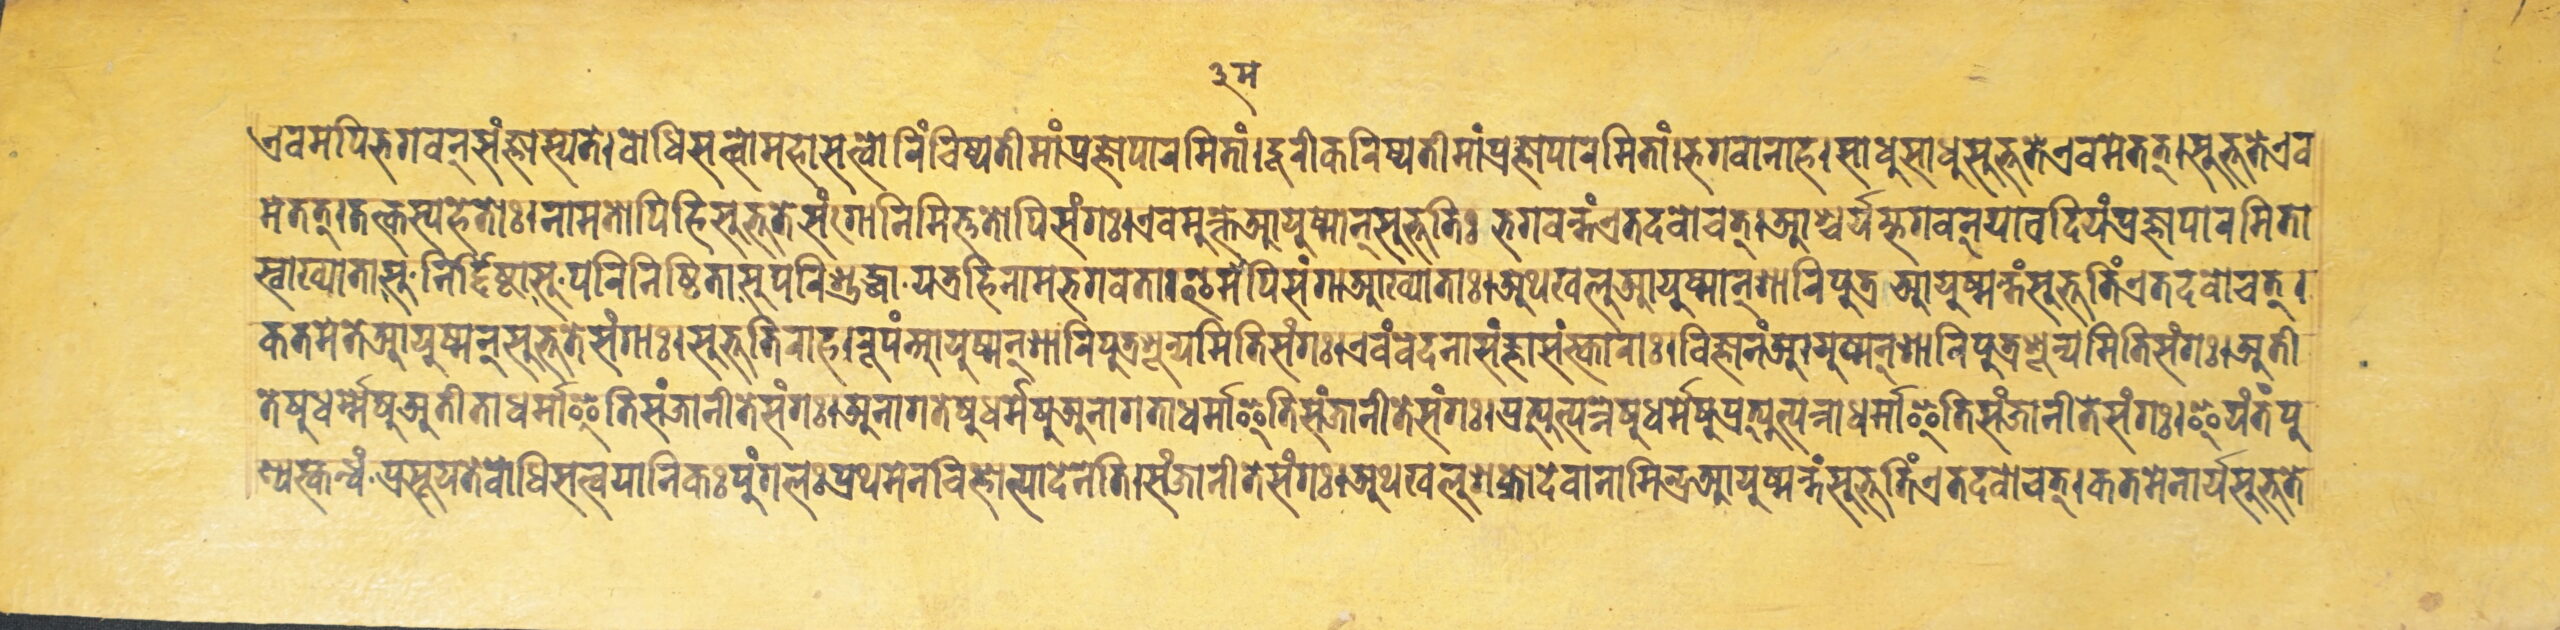 ३म
एवमपिभगवन्संज्ञास्यते।बोधिसत्त्वोमहासत्त्वोरिंचिष्यतीमांप्रज्ञापारमितां।दूरीकरिष्यतीमांप्रज्ञापारमितां।भगवानाह।साधुसाधुसुभूतेएवमेतत्।सुभूतेएव
मेतत्।तत्कस्यहेतोः।नामतोपिहिसुभूतेसंगोनिमित्ततोपिसंगः।एवमुक्तेआयुष्मान्सुभूतिः भगवन्तंएतदवोचत्।आश्चर्यम्भगवन्यावदियंप्रज्ञापारमिता
स्वाख्यातासु·निर्दिष्टासु·परिनिष्ठितासुपरिशुद्धा·यत्रहिनामभगवता।इमेपिसंगाआख्याताः।अथखलुआयुष्मान्शारिपुत्र आयुष्मन्तंसुभूतिंएतदवोचत्।
कतमेतेआयुष्मन्सुभूतेसंगाः।सुभूतिराह।रूपंआयुष्मन्शारिपुत्रशून्यमितिसंगः।एवंवेदनासंज्ञासंस्काराः।विज्ञानंआयुष्मन्शारिपुत्रशून्यमितिसंगः।अती
तेषुधर्म्मेषुअतीताधर्माइतिसंजानीतेसंगः।अनागतेषुधर्मेषुअनागताधर्माइतिसंजानीतेसंगः।प्रत्युत्पन्नेषुधर्मेषुप्रत्युत्पन्नाधर्माइतिसंजानीतेसंगः।इयंतंपु
ण्यस्कन्धं·प्रसूयतेबोधिसत्त्वयानिकःपुंगलःप्रथमेनचित्तोत्पादेनेति।संजानीतेसंगः।अथखलुशक्रोदेवानामिन्द्रआयुष्मन्तंसुभूतिंएतदवोचत्।कतमेनार्यसुभूते